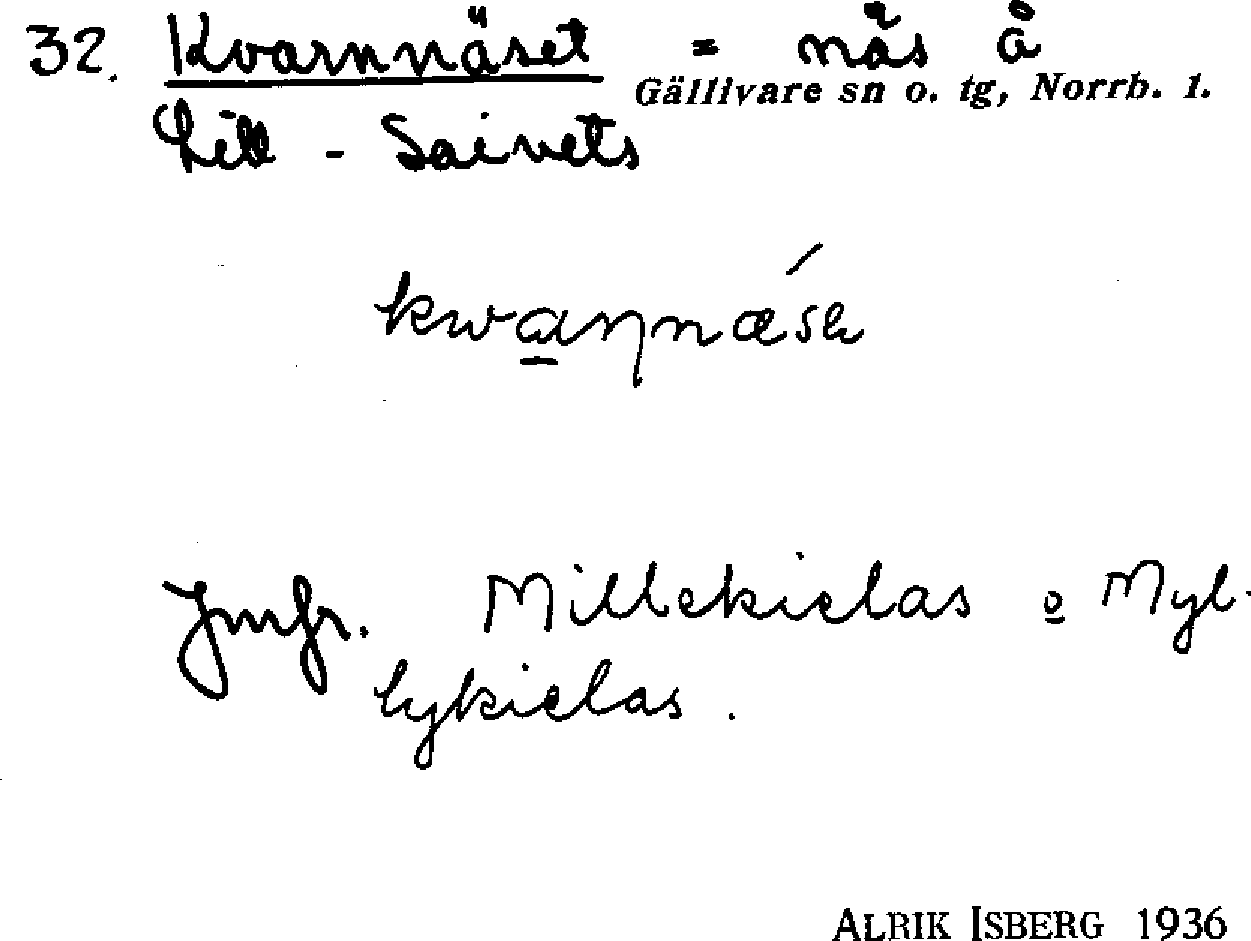 32. Kvarnnäset = näs å
Gällivare sn o. tg, Norrb. l.
Lill-Saivets
kwaṇnǽsə
Jmfr. Millekielas o Myl-
lykielas.
ALRIK ISBERG 1936